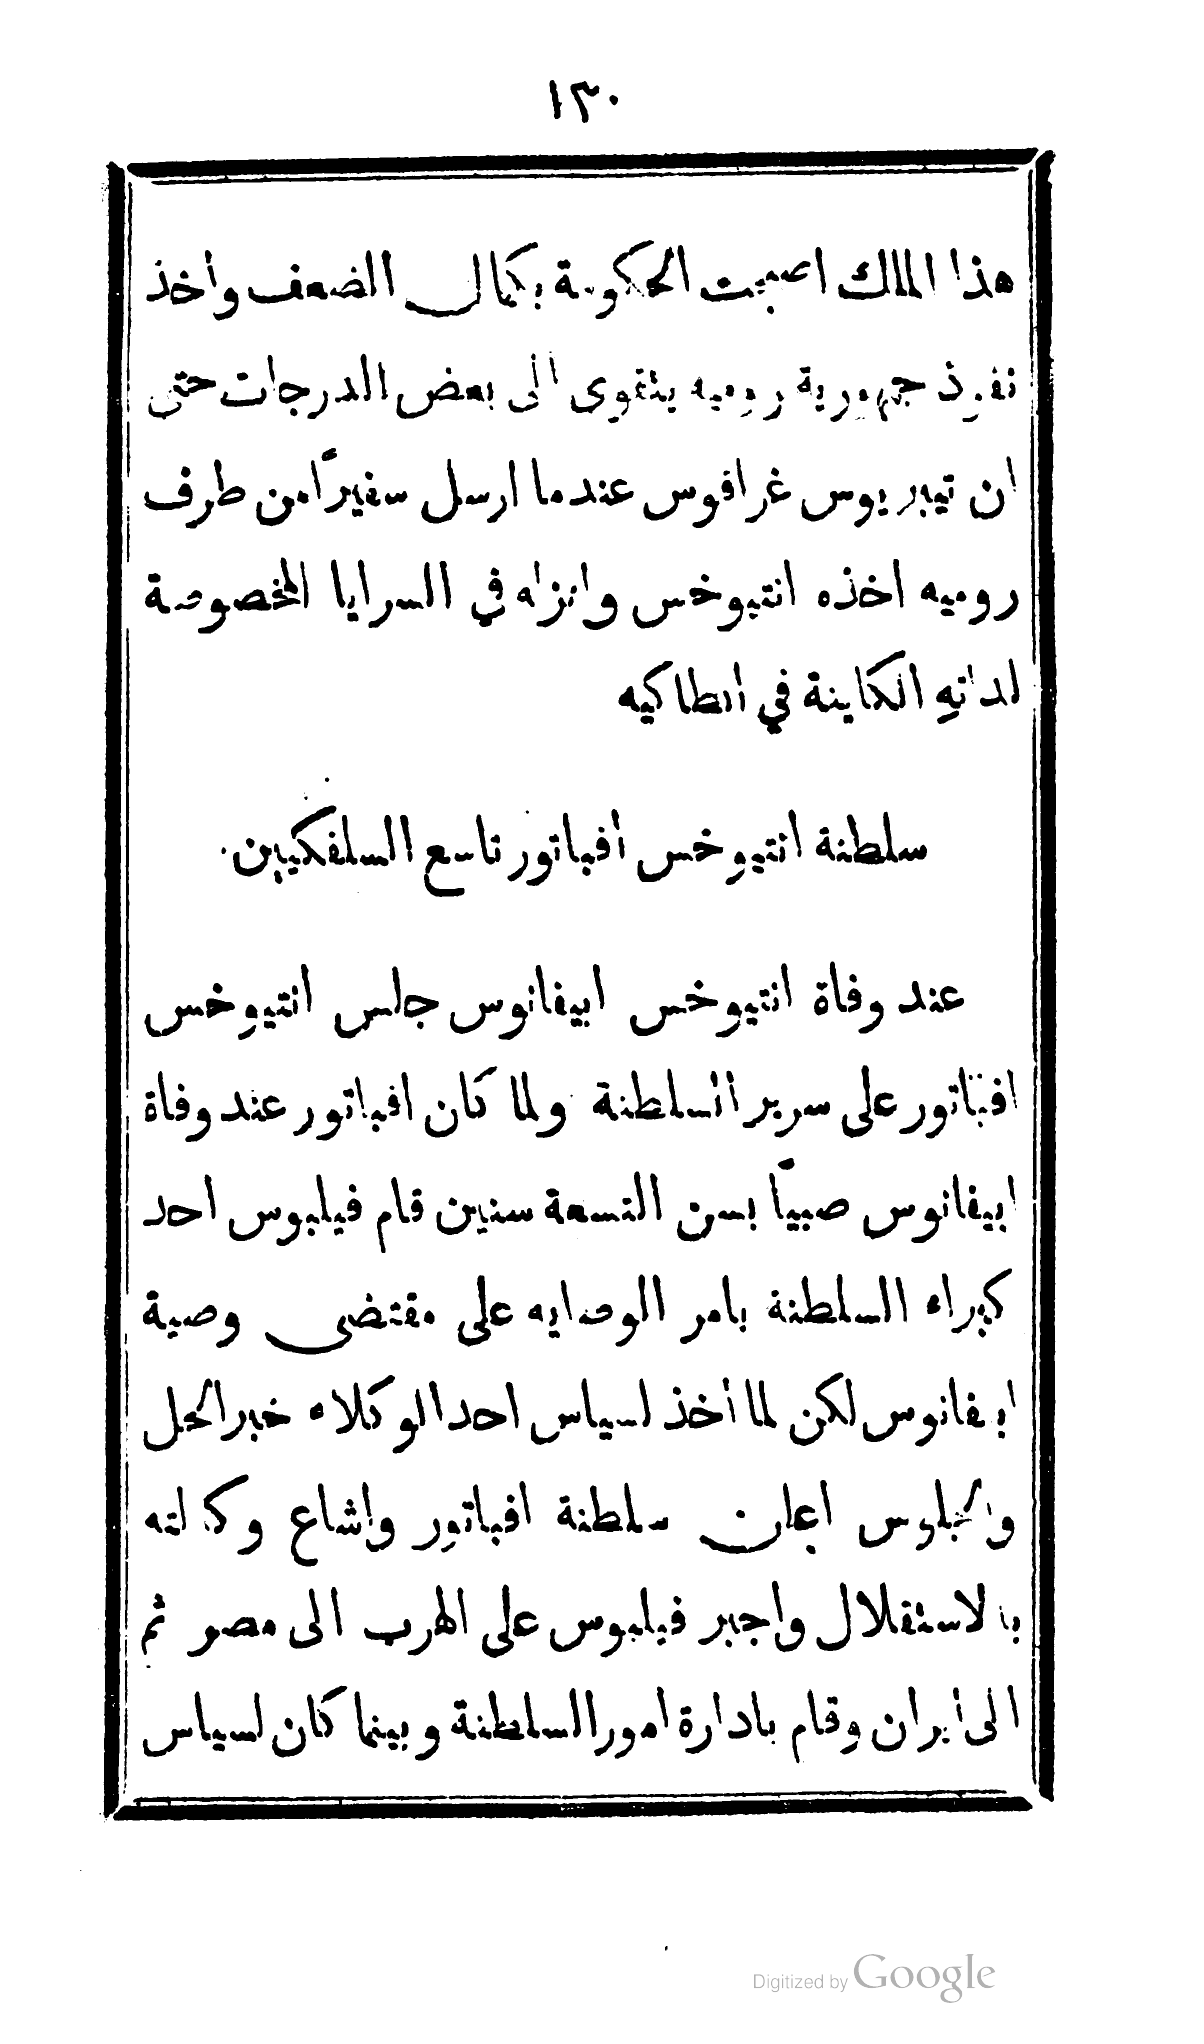 ١٣٠
هذا الملك اصبحت الحكومة بكمال الضعف واخذ
نفوذ جمهورية روميه يتقوى الى بعض الدرجات حتى
ان تيبريوس غرافوس عندما ارسل سفيرًا من طرف
روميه اخذه انتيوخس وانزله في السرايا المخصوصة
لذاته الكاينة في انطاكيه
سلطنة انتيوخس افباتور تاسع السلفكيين
عند وفاة انتيوخس ابيفانوس جلس انتيوخس
افباتور على سرير السلطنة ولما كان افباتور عند وفاة
ابيفانوس صبيًا بسن التسعة سنين قام فيلبوس احد
كبراء السلطنة بامر الوصايه على مقتضى وصية
ابيفانوس لكن لما أخذ لسياس احد الوكلاء خبر الحل
والجلوس اعلن سلطنة افباتور واشاع وكالته
بالاستقلال واجبر فيلبوس على الهرب الى مصر ثم
الى ايران وقام بادارة امور السلطنة وبينما كان لسياس
Digitized by Google